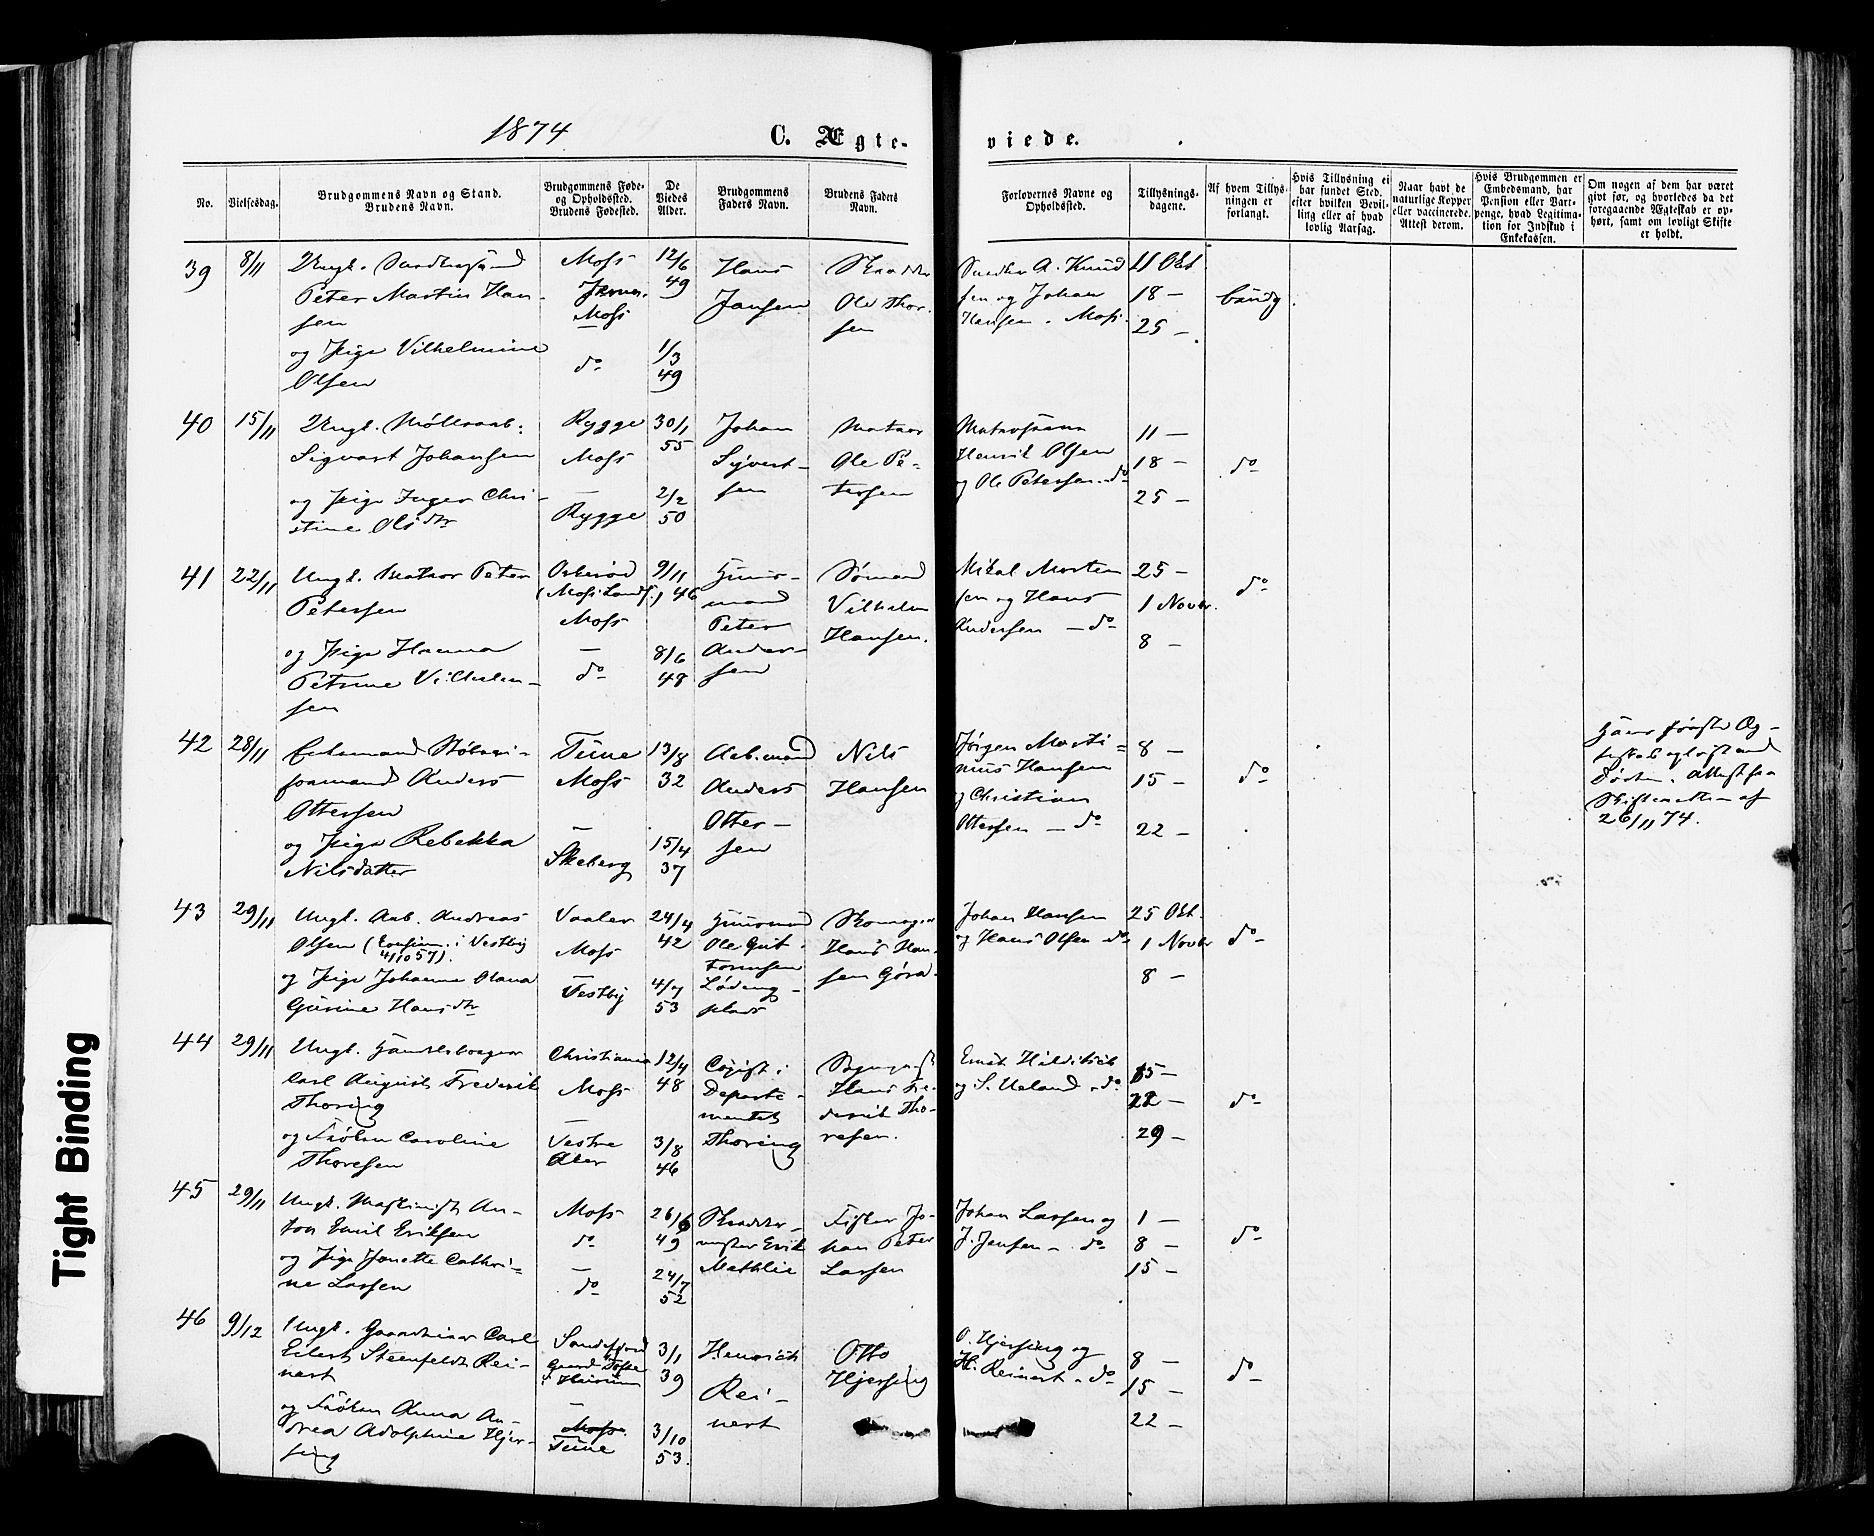 1874
C. Ægte-
viede.
No.
Vielsesdag.
Brudgommens Navn og Stand.
Brudens Navn.
Brudgommens Føde-
og Opholdssted.
Brudens Fødested.
De
Viedes
Alder.
Brudgommens
Faders Navn.
Brudens Faders
Navn.
Forlovernes Navne og
Opholdssted.
Tillysnings-
dagene.
Af hvem Tillys-
ningen er
forlangt.
Hvis Tillysning ei
har fundet Sted,
efter hvilken Bevil-
ling eller af hvad
lovlig Aarsag.
Naar havt de
naturlige Kopper
eller vaccinerede.
Attest derom.
Hvis Brudgommen er
Embedsmand, har
Pension eller Vart-
penge, hvad Legitima-
tion for Indskud i
Enkekassen.
Om nogen af dem har været
givt før, og hvorledes da det
foregaaende Ægteskab er op-
hørt, samt om lovligt Skifte
er holdt.
39
8/11
Ungk.
Peter Martin Han-
sen
og Pige Vilhelmine
Olsen
Moss
Moss
do
12/6
49
1/3
49
Hans
Jansen
Ole Thor-
sen
A. Knud
sen og Johan
Hansen. Moss
11 Okt
18 —
25 —
40
15/11
Ungk.
Sigvart Johansen
og Pige Inger Chri-
stine Olsdtr
Rygge
Moss
—
Rygge
30/1
55
2/2
50
Johan
Syvert-
sen
Matros
Ole Pe-
tersen
Henrik Olsen
og Ole Petersen. do
11 —
18 —
25 —
do
41
22/11
Ungk. Matros Peter
Petersen
og Pige Hanna
Petrine Vilhelm-
sen
(Moss Lands.)
Moss
—
do
9/11
46
8/6
48
Huus-
mand
Peter
Ander-
sen
Sømand
Vilhelm
Hansen.
Mikal Morten
sen og Hans
Andersen — do
25 —
1 Novbr.
8 —
do
42
28/11
Enkemand
formand Anders
Ottersen
og Pige Rebekka
Nilsdatter
Tune
Moss
—
Skeberg
13/8
32
15/4
37
Arb.mand
Anders
Otter-
sen
Nils
Hansen
Jørgen Marti-
nius Hansen
og Christian
Ottersen — do
8 —
15 —
22 —
do
Hans første Æg-
teskab opløst ved
Døden. Attest fra
Skifteretten af
26/11 74.
43
29/11
Ungk. Arb. Andreas
Olsen (Confirm. i Vestby
4/10 57).
og Pige Johanne Olava
Gusine Hansdtr
Vaaler
Moss
Vestby
24/4
42
4/7
53
Huusmand
Ole Gut-
tormsen
Skomager
Hans Han-
sen
Johan Hansen
og Hans Olsen do
25 Okt.
1 Novbr
8 —
do
44
29/11
Ungk.
Carl August Frederik
Thoring
og Frøken Caroline
Thoresen
Christiania
Moss
—
Vestre
Aker
12/4
48
3/8
46
Copist i
Departe-
mentet
Thoring
Sogneprest
Hans Fre-
derik Tho-
resen.
Ernst Hilditsch
og S. Ueland do
15 —
22 —
29 —
do
45
29/11
Ungk. Maskinist An-
ton Emil Eriksen
og Pige Jonette Cathri-
ne Larsen
Moss
do
—
do
26/6
49
24/7
52
Skrædder-
mester Erik
Mathlie
Fisker Jo-
han Peter
Larsen
Johan Larsen og
J. Jensen — do
1 —
8 —
15 —
do
46
9/12
Ungk. Gaardeier Carl
Eilert Steenfeldt Rei-
nert
og Frøken Anna An-
drea Adolphine Hjer-
sing
Sandefjord
—
Moss
Tune
3/1
39
3/10
53.
Henrich
Rei-
nert
Otto
Hjersing
O. Hjersing og
H. Reinert. do
8 —
15 —
22 —
do
Tight Binding